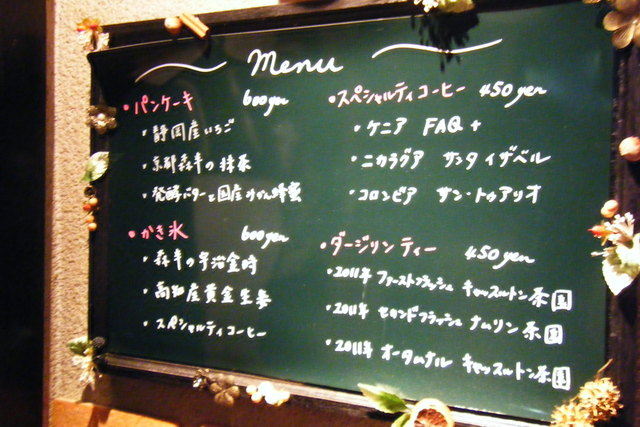 Menu
・パンケーキ 600yen
・静岡産いちご
・京都森半の抹茶
・発酵バターと国産みかん蜂蜜
・かき氷 600yen
・森半の宇治金時
・高知産黄金生姜
・スペシャルティコーヒー
・スペシャルティコーヒー 450yen
・ケニア FAQ+
・ニカラグア サンタイザベル
・コロンビア サン・トゥアリオ
・ダージリンティー 450yen
・2011年 ファーストフラッシュ キャッスルトン茶園
・2011年 セカンドフラッシュ ナムリン茶園
・2011年 オータムナル キャッスルトン茶園